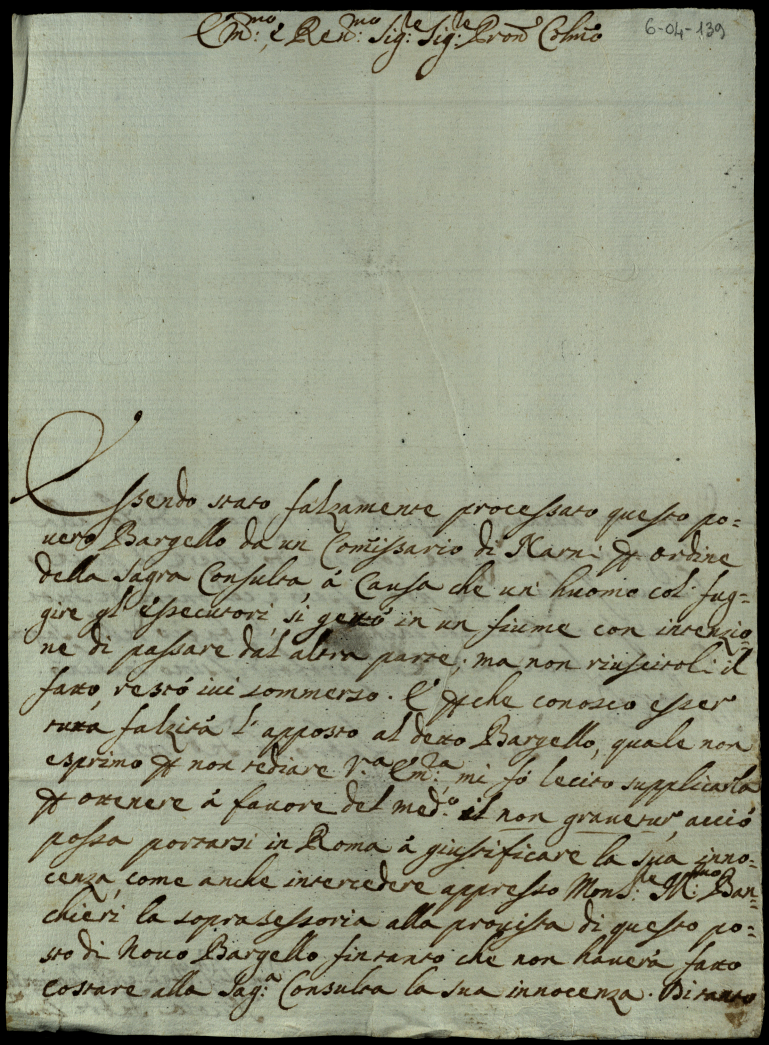 6-04-139
Em.mo, e Reu.mo Sig.le Sig.le Pron.e Colmo
Essendo stato falzamente processato questo po=
uero Bargello da un Comissario di Narni ꝑ ordine
della Sagra Consulta, à Causa che un' huomo col' fug=
gire gl' essecutori, si gettò in un fiume con intenzio=
ne di passare dal' altra parte; ma non riuscitoli il
fatto, restò iui sommerso. E ꝑche conosco esser'
tutta falzità l' apposto al detto Bargello, quale non
esprimo ꝑ non tediare V.a Em.za, mi fò lecito supplicarla
ꝑ ottenere à fauore del med.o il non grauetur, acciò
possa portarsi in Roma à giustificare la sua inno=
cenza, come anche intercedere appresso Mons.le Ill.mo Ban=
chieri la soprasessoria alla prouista di questo po=
sto di Nouo Bargello fintanto che non hauerà fatto
costare alla Sag.a Consulta la sua innocenza. Di tanto